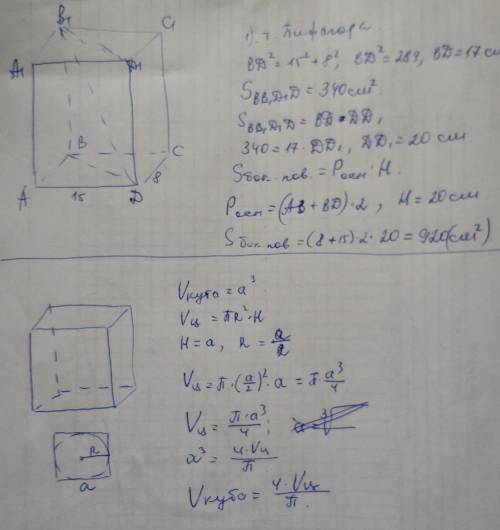 B₁
C₁
A₁
D₁
B
C
A
15
D
8
1) т. Пифагора.
BD² = 15² + 8², BD² = 289, BD = 17 см
S BB₁D₁D = 340 см²
S BB₁D₁D = BD · DD₁
340 = 17 · DD₁, DD₁ = 20 см
S бок. пов. = P осн · H.
P осн = (AB + BD) · 2, H = 20 см
S бок пов = (8 + 15) · 2 · 20 = 920 (см²)
V куба = a³
V ц = ПR² · H
H = a, R = a/2
V ц = П · (a/2)² · a = П · a³/4
V ц = П · a³/4;
a³ = 4 · V ц/П
V куба = 4 · V ц/П.
R
a